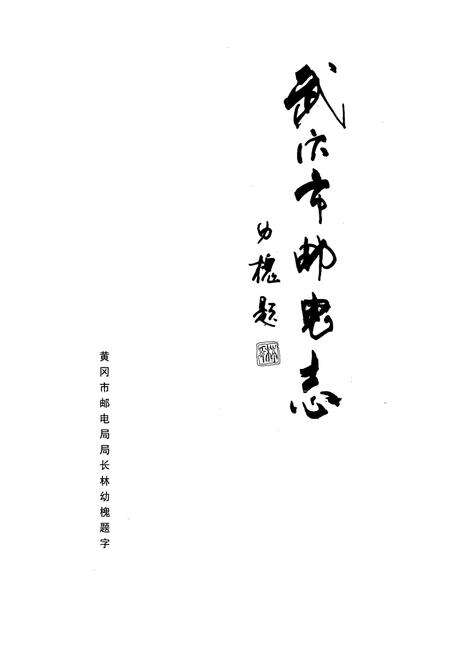 武穴市邮电志
幼槐题
黄冈市邮电局局长林幼槐题字